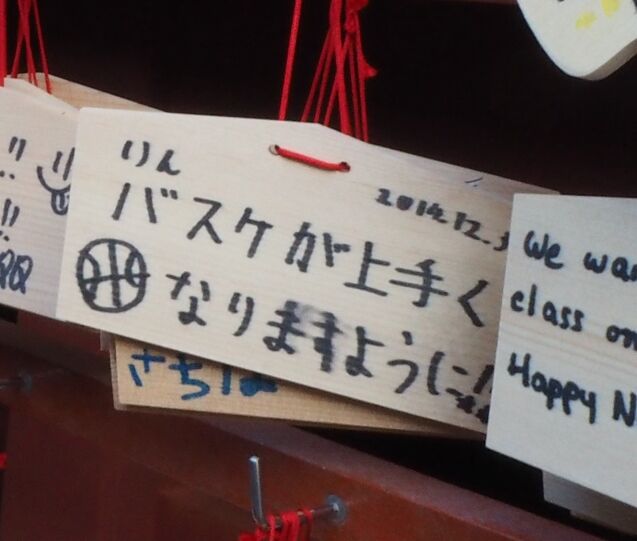 りん
2014.12.3
バスケが上手く
なりますように!!
さちは
We wa
class on
Happy N